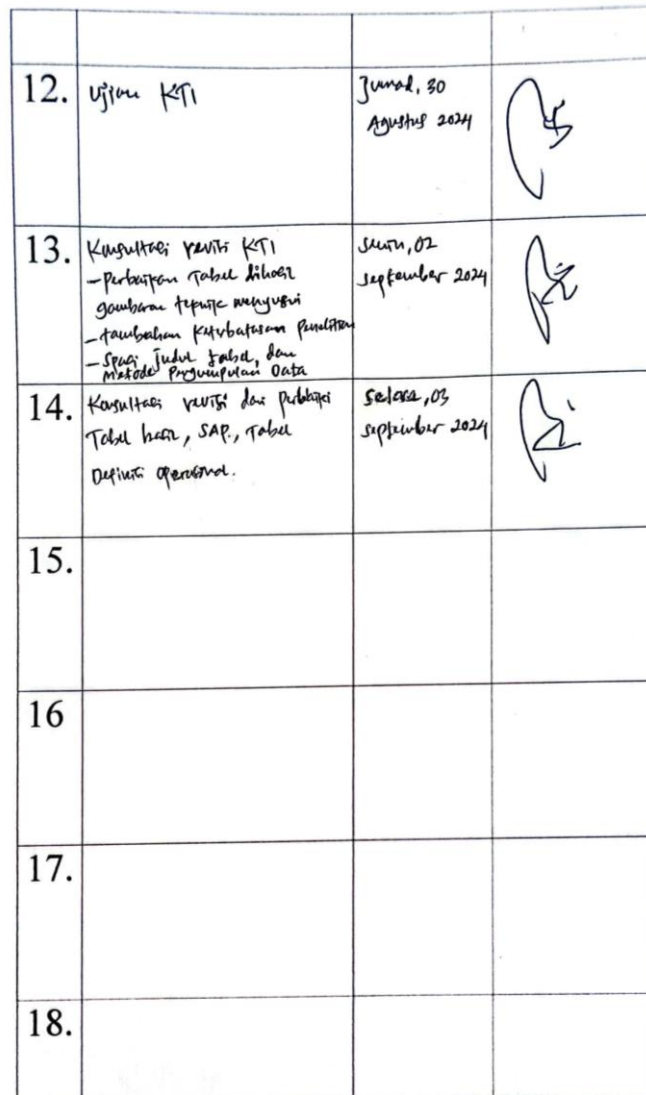 12. Ujian KTI
Jumat, 30
Agustus 2024
13. Konsultasi revisi KTI
- Perbaikan Tabel dihasil
gambaran teknik menyusui
- tambahan Keterbatasan Penelitian
- Spasi judul tabel, dan
Metode Pengumpulan Data
Senin, 02
September 2024
14. Konsultasi revisi dan perbaiki
Tabel hasil, SAP., Tabel
Definisi Operasional.
Selasa, 03
September 2024
15.
16
17.
18.